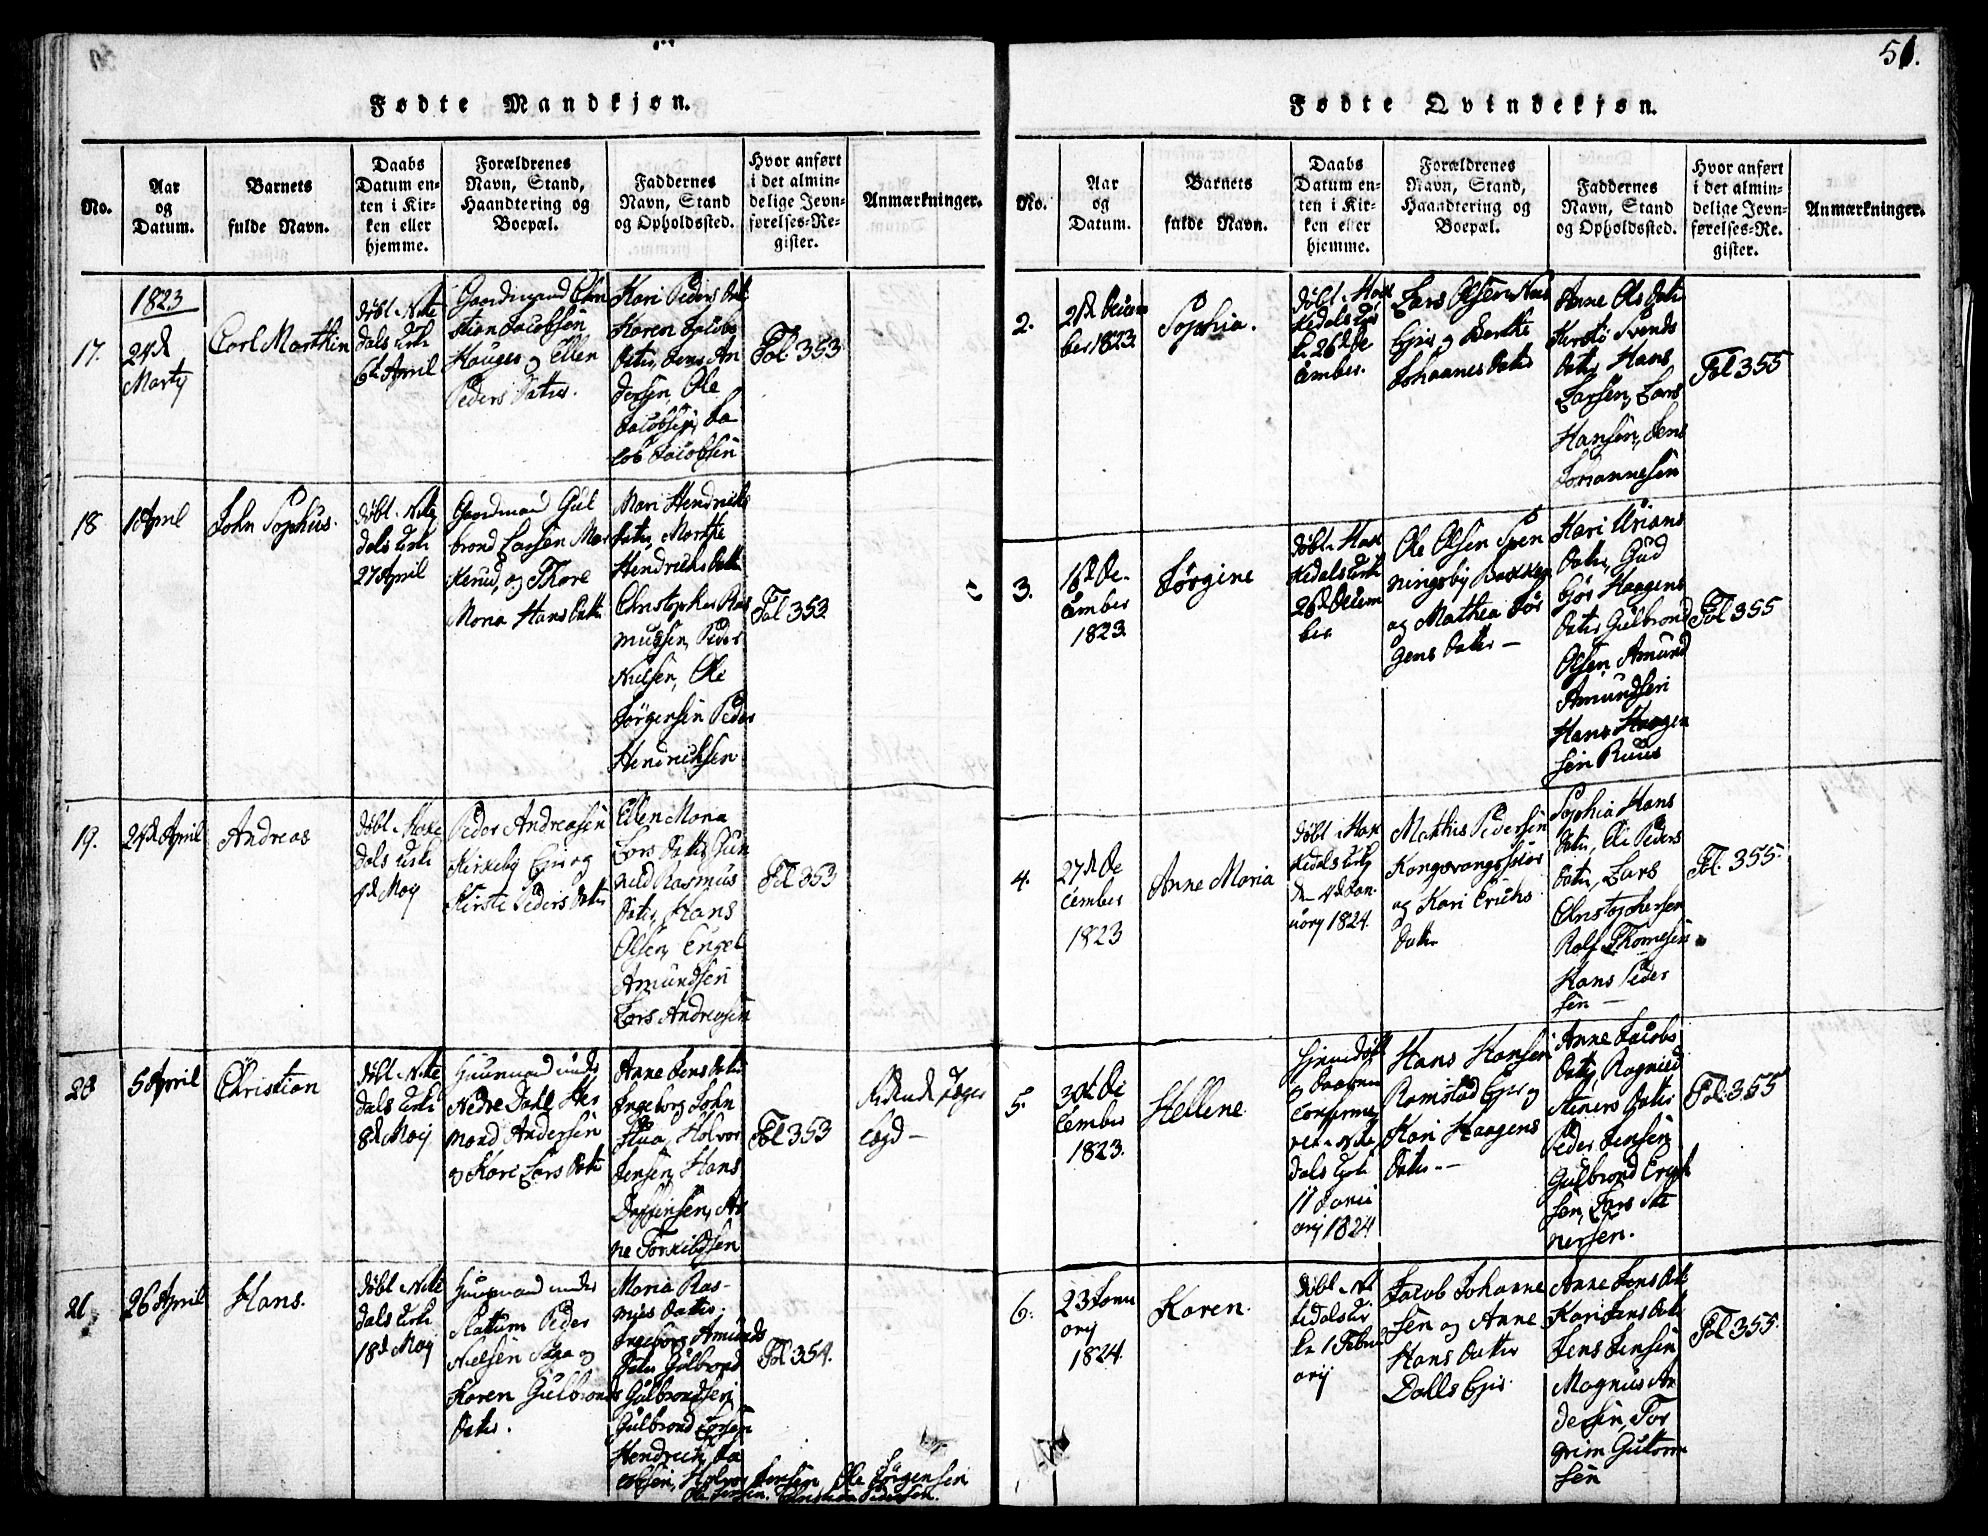 51.
Fødte Mandkjøn.
No.
Aar
og
Datum.
Barnets
fulde Navn.
Daabs
Datum en-
ten i Kir-
ken eller
hjemme.
Forældrenes
Navn, Stand,
Haandtering og
Boepæl.
Faddernes
Navn, Stand
og Opholdssted.
Hvor anført
i det almin-
delige Jevn-
førelses-Re-
gister.
Anmærkninger.
17.
1823
24de
Martij
Carl Marthin
døbt i Nitte
dals Kirke
6te April
Gaardmand Chri
stian Jacobsen
Hauger og Ellen
Peders Datter.
Kari Peders Datt
Karen Jacobs
Datter, Jens An
dersen, Ole
Jacobsen, Ja
cob Jacobsen
Fol 353
18
1 April
John Sophus.
døbt i Nitte
dals Kirke
27 April
Gaardmand Gul
brand Larsen Mar
kerud, og Thore
Maria Hans Datt.
Mari Hendrichs
Datter, Marthe
Hendrichs Datt
Christopher Ras
mussen, Peder
Nielsen, Ole
Jörgensen Peder
Hendrichsen
Fol 353
19.
24de April
Andreas
døbt i Hake
dals Kirke
4de Maij
Peder Andreasen
Kirkeby Eier og
Kirsti Peders Datter
Ellen Maria
Lars Datter, Gun
nild Rasmus
Datter, Hans
Olsen, Engel
Amundsen
Lars Andreasen
Fol 353
20
5 April
Christian
døbt i Nitte
dals Kirke
8de Maij
Huusmand under
Nedre Dahl Her
mand Andersen
og Kari Lars Datter
Anne Jens Datter
Ingeborg John
Hua, Holvor
Jensen, Hans
An
ne Torkildsen
Fol 353
Ridende Jæger
Lægd –
21
26 April
Hans.
døbt i Nitte
dals Kirke
18de Maij
Huusmand under
Slattum Peder
Nielsen og
Karen Gulbrands
Datter.
Maria Ras-
mus Datter,
Ingeborg Amunds
Datter Gulbrand
Gulbrandsen
Gulbrand Larsen
Hendrich Ja
cobsen, Holvor Jensen, Ole Jörgensen
Ole Jensen. Christian Pedersen.
Fol 354.
Fødte Qvindekjøn.
No.
Aar
og
Datum.
Barnets
fulde Navn.
Daabs
Datum en-
ten i Kir-
ken eller
hjemme.
Forældrenes
Navn, Stand,
Haandtering og
Boepæl.
Faddernes
Navn, Stand
og Opholdssted.
Hvor anført
i det almin-
delige Jevn-
førelses-Re-
gister.
Anmærkninger.
2.
21de Decem
ber 1823
Sophia.
døbt i Hak
kedals Kir
ke 26de De
cember.
Lars Olsen
Eier og Berthe
Johannes Datter
Anne Ols Datter
Kersti Svends
Datter, Hans
Larsen, Lars
Hansen, Jens
Johannesen
Fol 355
3.
16de De-
cember
1823
Jörgine
døbt i Hak
kedals Kirke
26de Decem
ber
Ole Olsen Sven
ningsby Bakken
og Mathea Jör
gens Datter –
Kari Urians
Datter, Gud
björ Haagens
Datter Gulbrand
Olsen Amund
Amundsen
Hans Haagen
sen Ruud
Fol 355
4.
27de De
cember
1823
Anne Maria
døbt i Hak
kedals Kirke
den 4de Jan.
uary 1824.
Mathis Pedersen
og Kari Erichs
Datter
Sophia Hans
Datter, Eli Peders
Datter, Lars
Christophersen
Rolf Thomesen
Hans Peder
sen –
Fol. 355.
5.
30de De
cember
1823.
Hellene
hjemmedöbt
og Daaben
Confirme
ret i Nitte
dals Kirke
11 Janu
arij 1824
Hans Hansen
Ramstad Eier og
Kari Haagens
Datter. –
Anne Jacobs
Datter, Ragnild
Steners Datter
Peder Jensen
Gulbrand Erich
sen, Lars Ste
nersen.
Fol. 355
6.
23 Janu
arij
1824.
Karen.
døbt i Nit
tedals Kir
ke 1 Febru
arij
Jacob Johanne
sen og Anne
Hans Datter
Dalls Eier
Anne Jens Dat
Kari Jens Datt
Jens Jensen
Magnus An
dersen, Tor
grim Guttorm
sen
Fol 355.